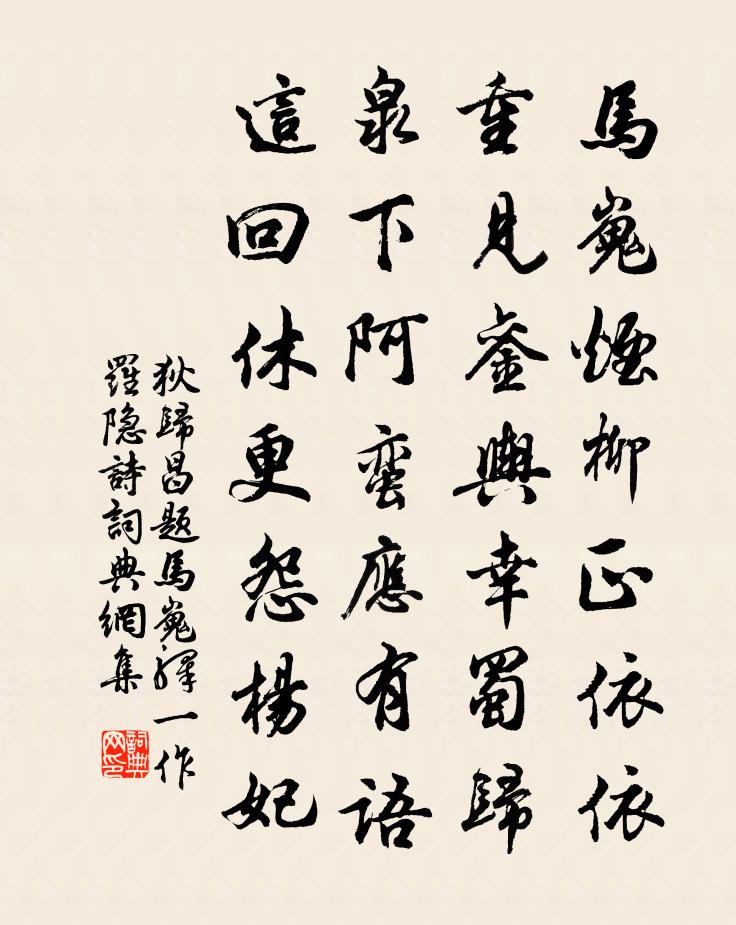 馬嵬煙柳正依依
重見銮輿幸蜀歸
泉下阿蛮應有語
這回休更怨楊妃
狄歸昌題馬嵬驛一作
羅隐詩詞典網集
詞典网印